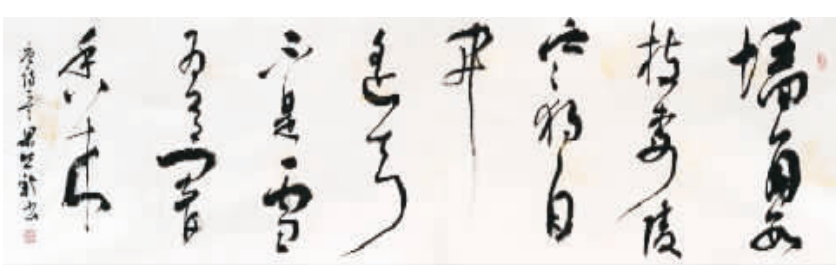 墙角数
枝梅凌
寒独自
開
遥知
不是雪
为有暗
香来